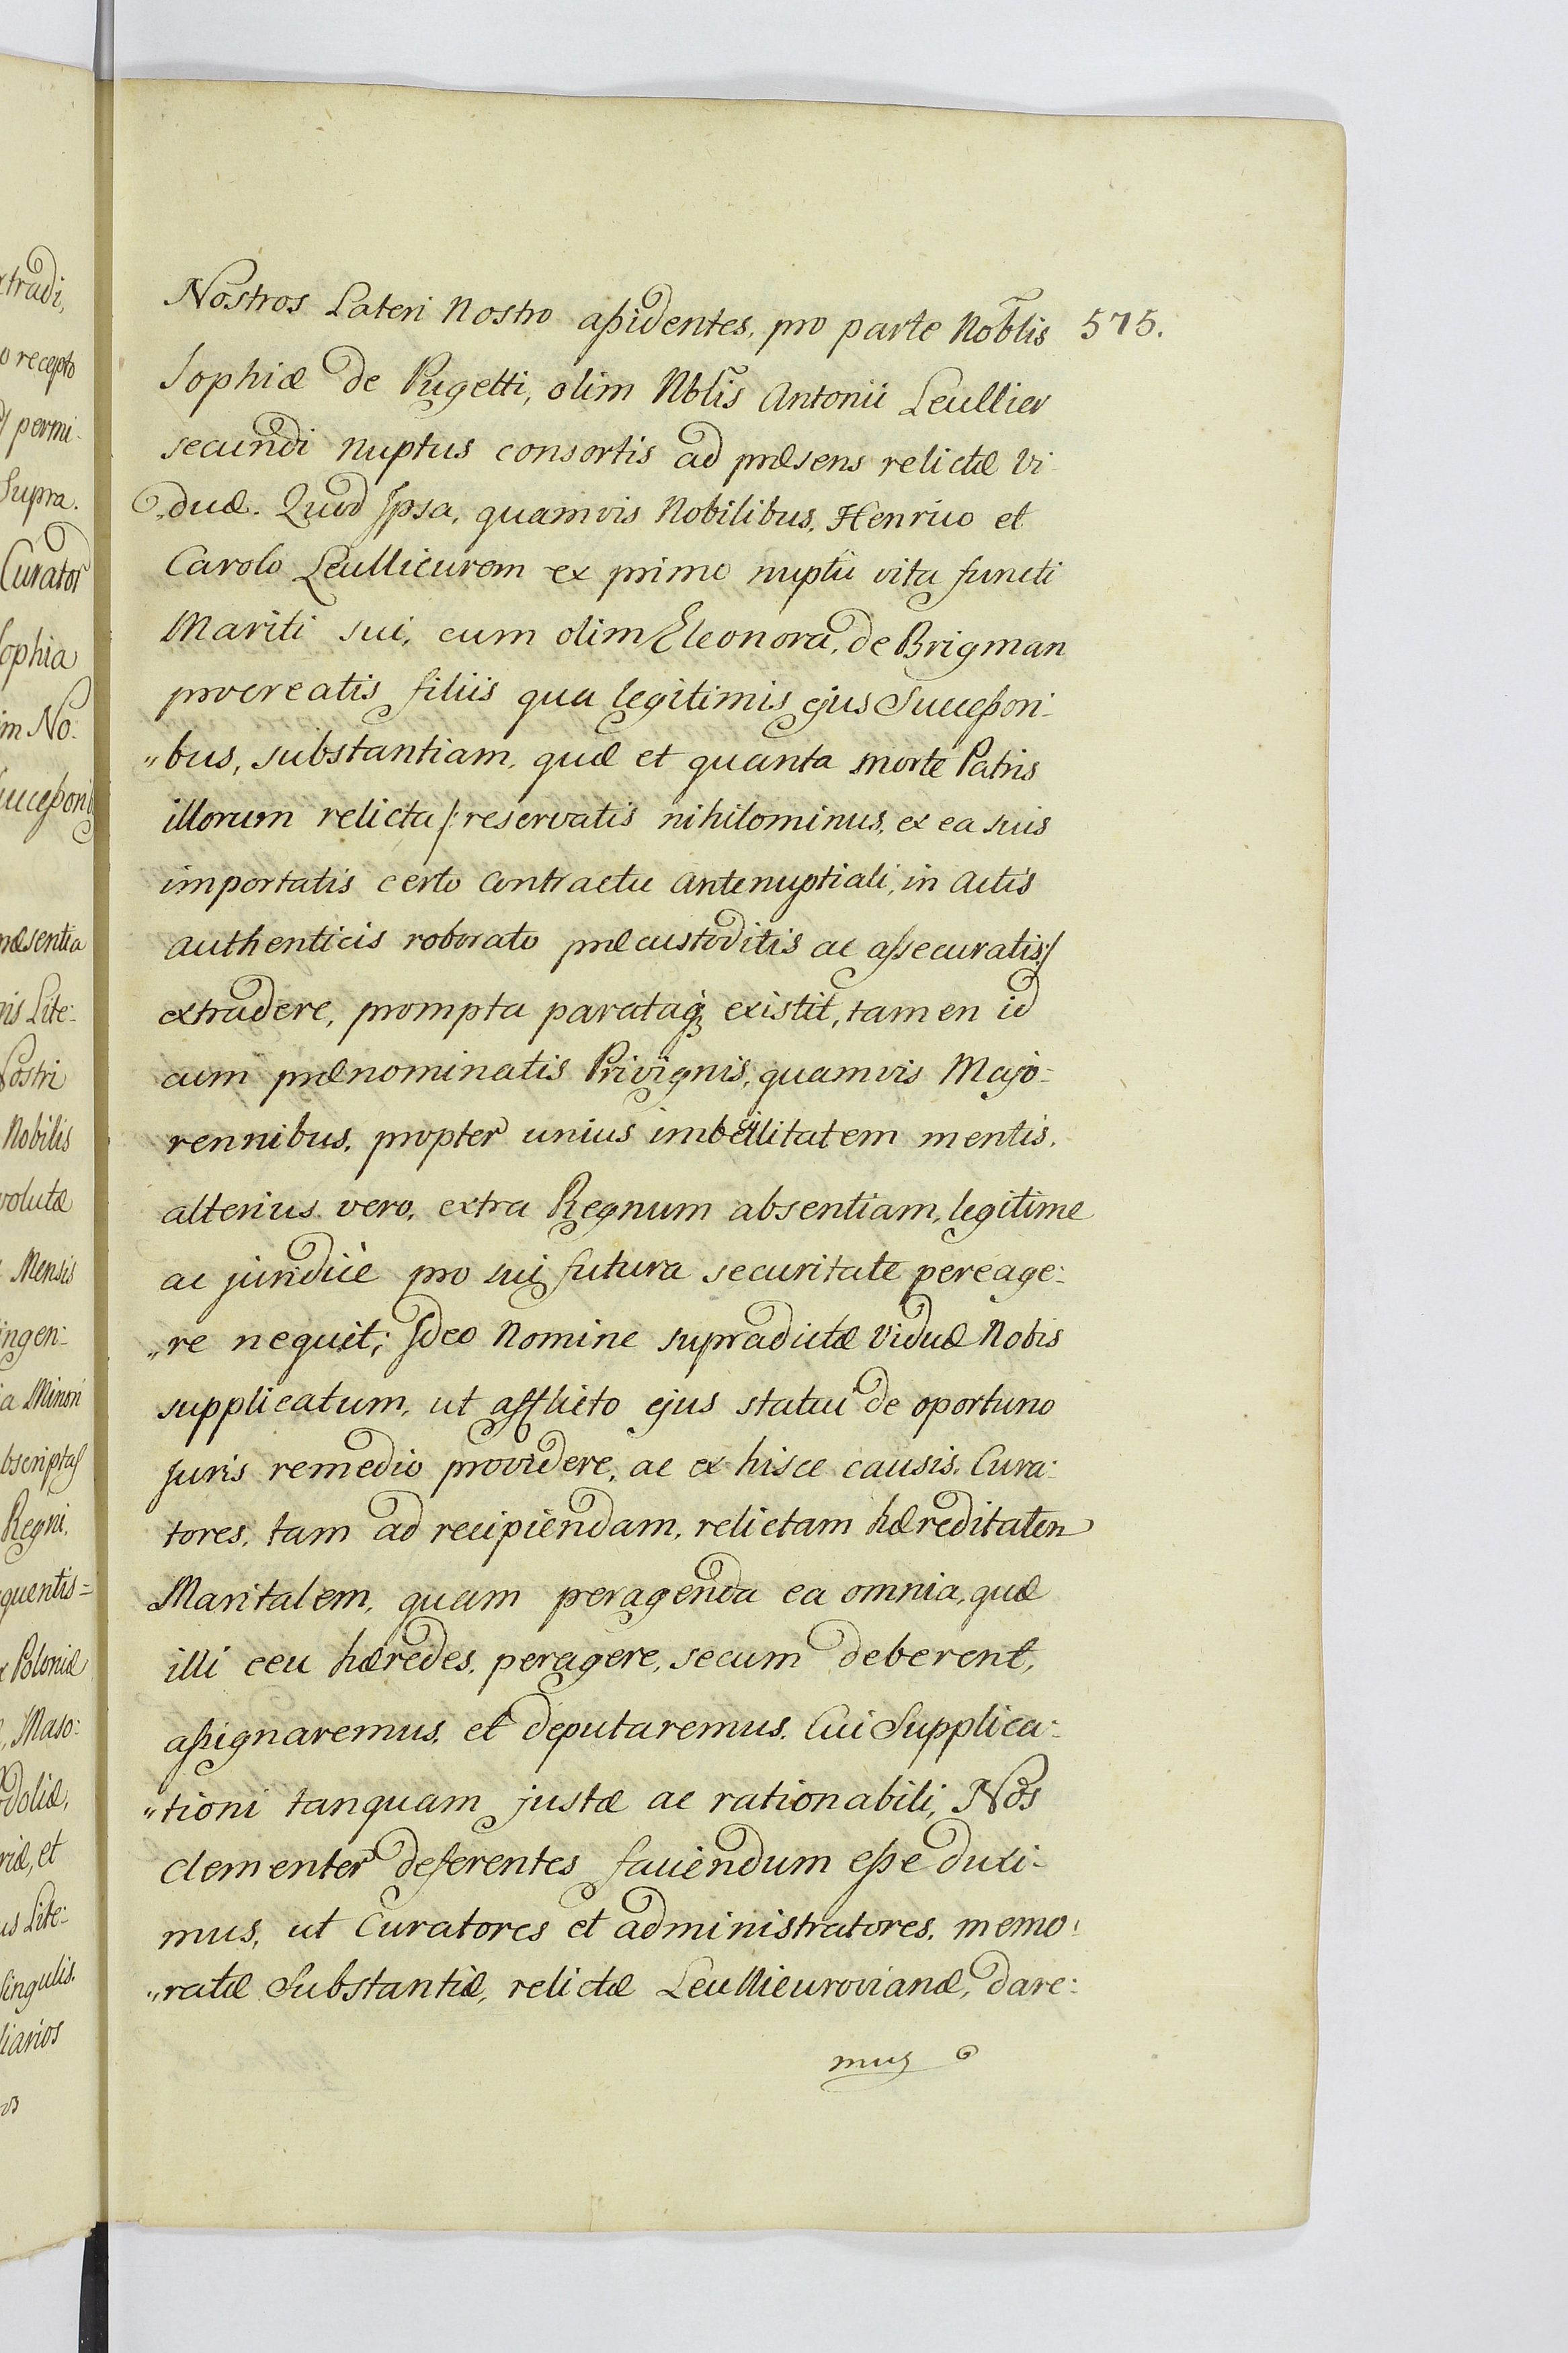 Nostros Lateri Nostro aßidentes, pro parte Nobłis 575.
Sophiæ de Pugetti, olim Nbłis Antonii Leullier
secundi nuptus consortis ad præsens relictæ Vi-
„duæ. Quod Ipsa, quamvis Nobilibus, Henrico et
Carolo Leullieurom ex primo nuptu vita functi
Mariti sui, cum olim Eleonora, de Brigman
procreatis filiis qua legitimis ejus Succeßori-
„bus, substantiam, quæ et quanta morte Patris
illorum relicta /: reservatis nihilominus, ex ea suis
importatis certo Contractu Antenuptiali, in Actis
Authenticis roborato præcustoditis ac assecuratis :/
extradere, prompta parataq; existit, tamen id
cum prænominatis Privignis, quamvis Majo-
rennibus, propter unius imbecillitatem mentis,
alterius vero, extra Regnum absentiam, legitime
ac juridicè pro sui futura securitate pereage:
„re nequit; Ideo Nomine supradictæ Viduæ Nobis
supplicatum, ut afflicto ejus statui de oportuno
Juris remedio providere, ac ex hisce causis, Cura:
tores, tam ad recipiendam, relictam hæreditatem
Maritalem, quam peragenda ea omnia, quæ
illi ceu hæredes, peragere, secum deberent,
aßignaremus, et deputaremus. Cui Supplica-
„tioni tanquam justæ ac rationabili, Nos
clementer deferentes faciendum eße duxi-
mus, ut Curatores et administratores, memo:
„ratæ Substantiæ, relictæ Leullieurovianæ, dare:
mus
xtradi,
o recepto
permi-
Supra.
Curator
Sophia
im No:
succeßori
præsentia
Lite:
Nostri
Nobilis
volutæ
Mensis
ingen:
ia Minori
bscriptas
Regni,
quentis=
Poloniæ
Maso:
doliæ,
riæ, et
us Lite:
Singulis,
liarios